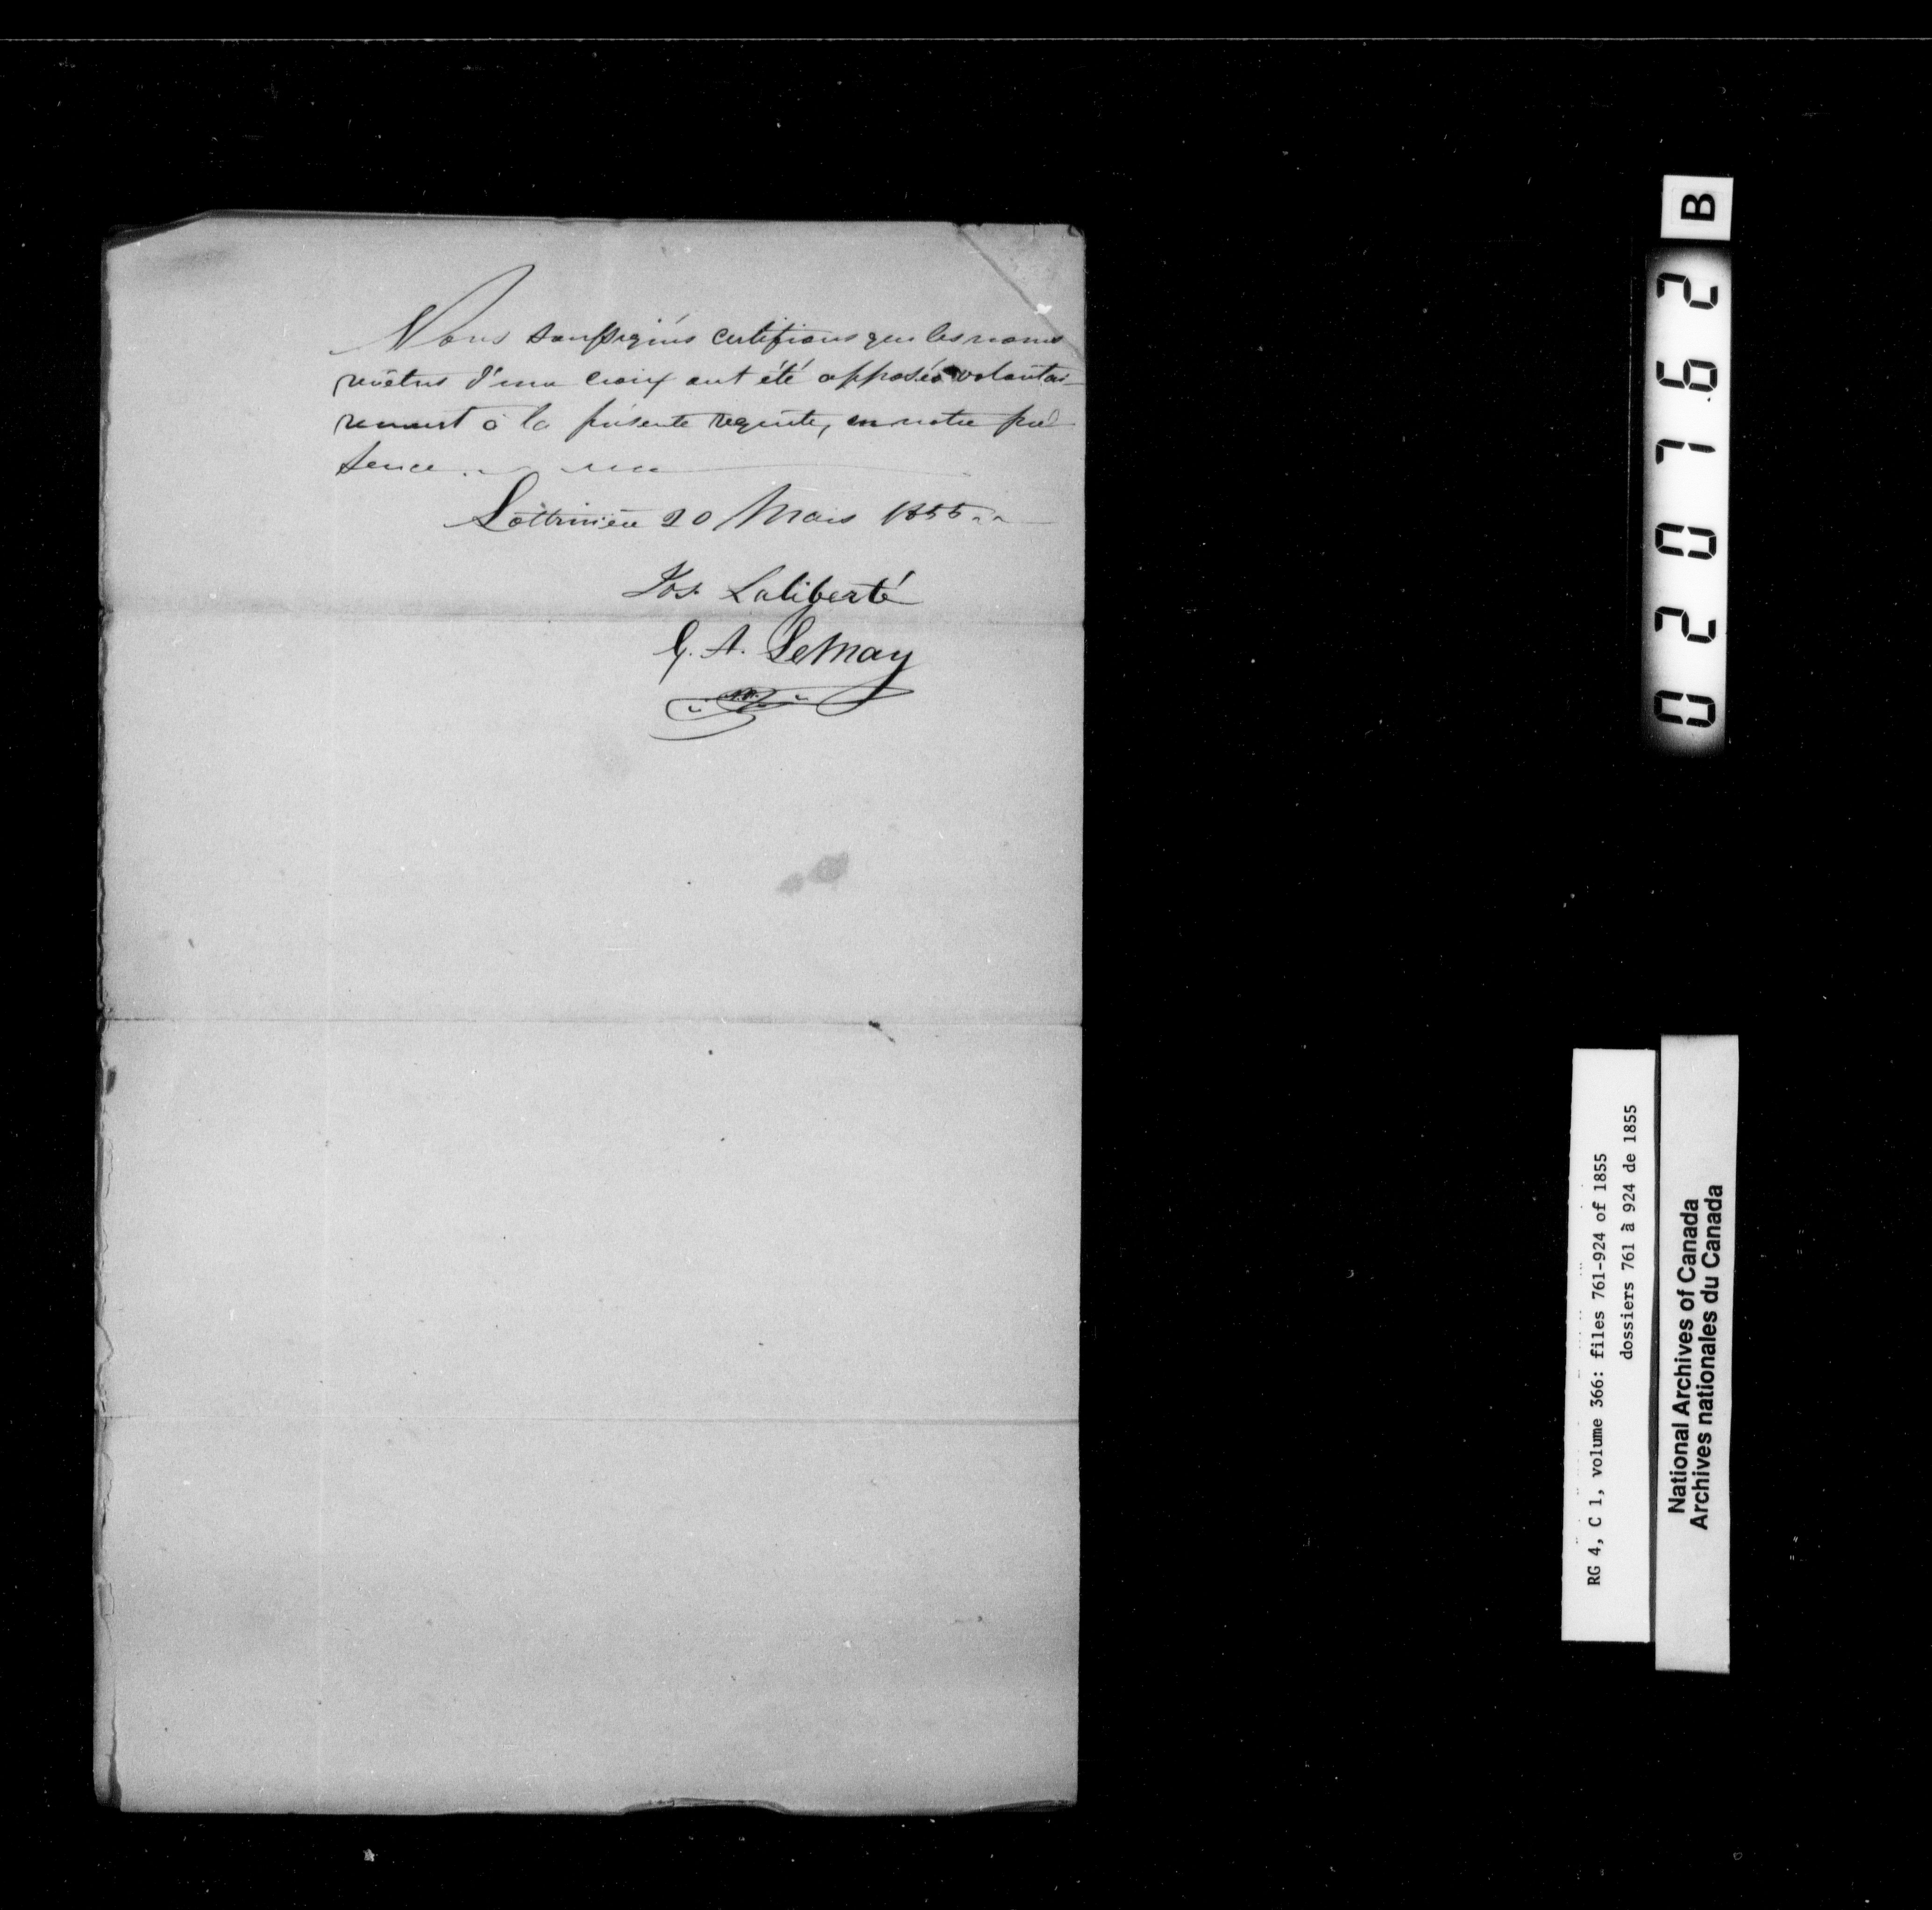 Nous soussignés certifions que les noms
revêtus d'une croix ont été apposés volontai-
rement à la présente requête, en notre pré-
sence.
Lotbinière 20 Mars 1855
Jos. Laliberté
G. A. LeMay
B
020762
RG 4, C 1, volume 366: files 761-924 of 1855
dossiers 761 à 924 de 1855
National Archives of Canada
Archives nationales du Canada